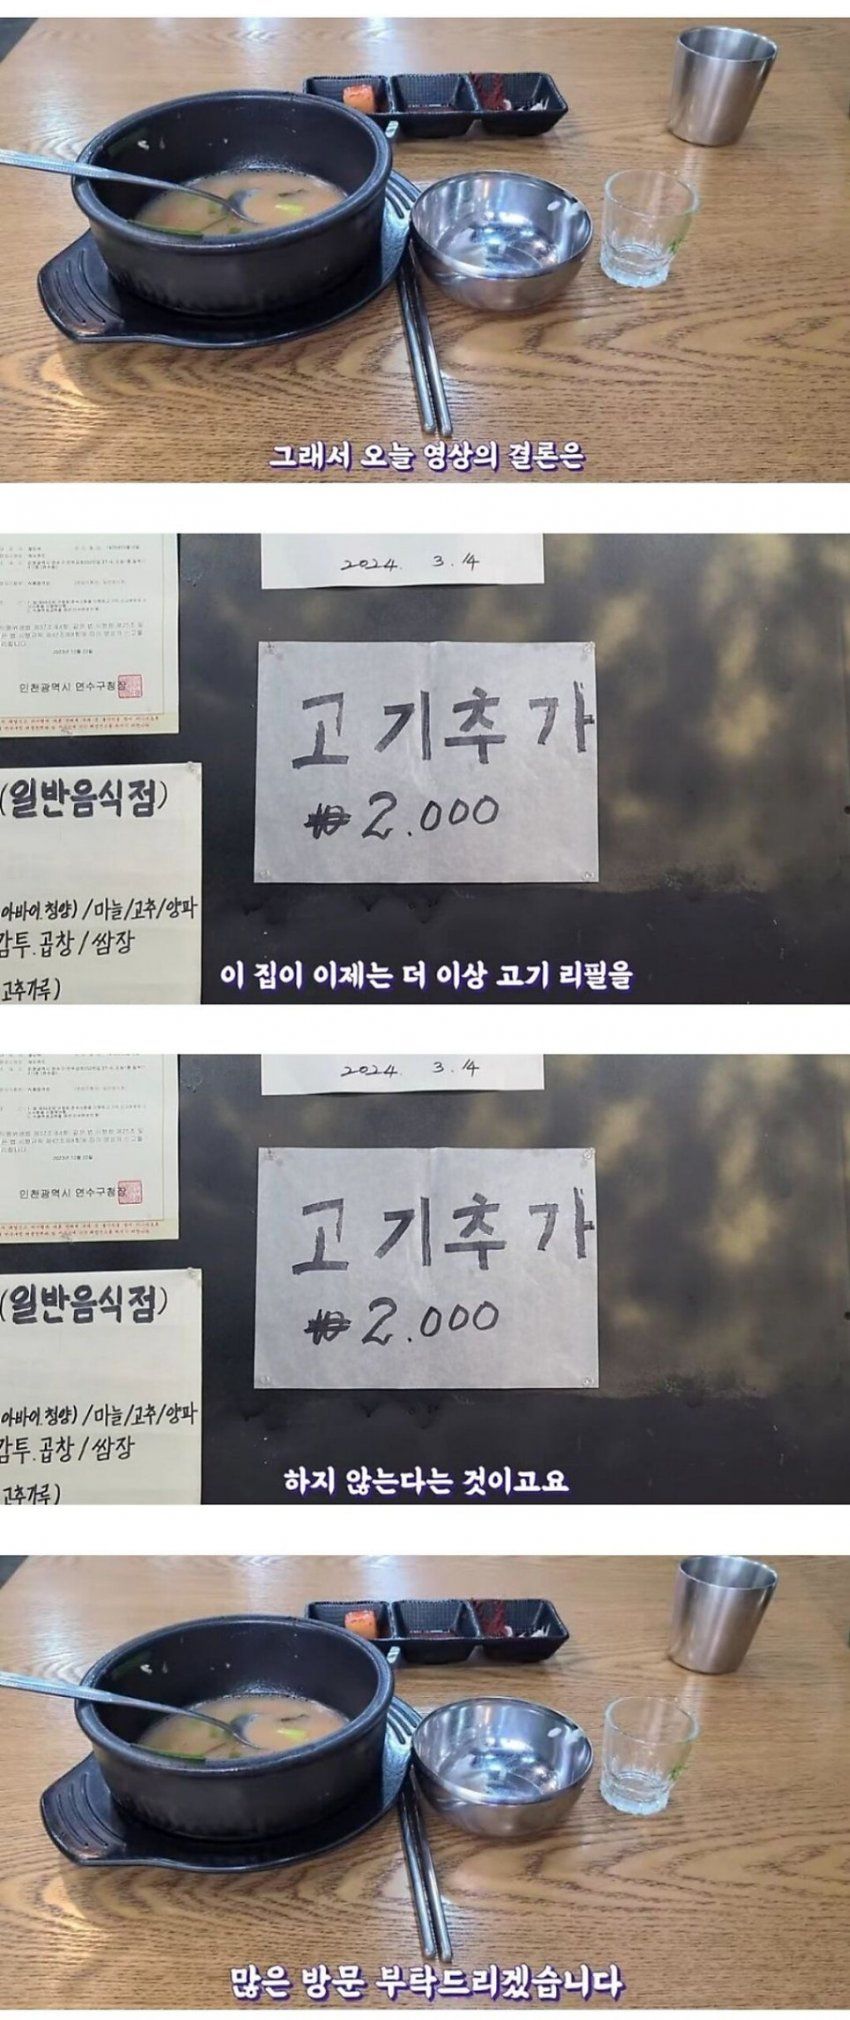 그래서 오늘 영상의 결론은
2024. 3. 14
고기추가
₩2.000
인천광역시 연수구청장
(일반음식점)
아바이.청양) / 마늘/고추/양파
감투.곱창 / 쌈장
고추가루)
이 집이 이제는 더 이상 고기 리필을
2024. 3. 14
고기추가
₩2.000
인천광역시 연수구청장
(일반음식점)
아바이.청양) / 마늘/고추/양파
감투.곱창 / 쌈장
고추가루)
하지 않는다는 것이고요
많은 방문 부탁드리겠습니다